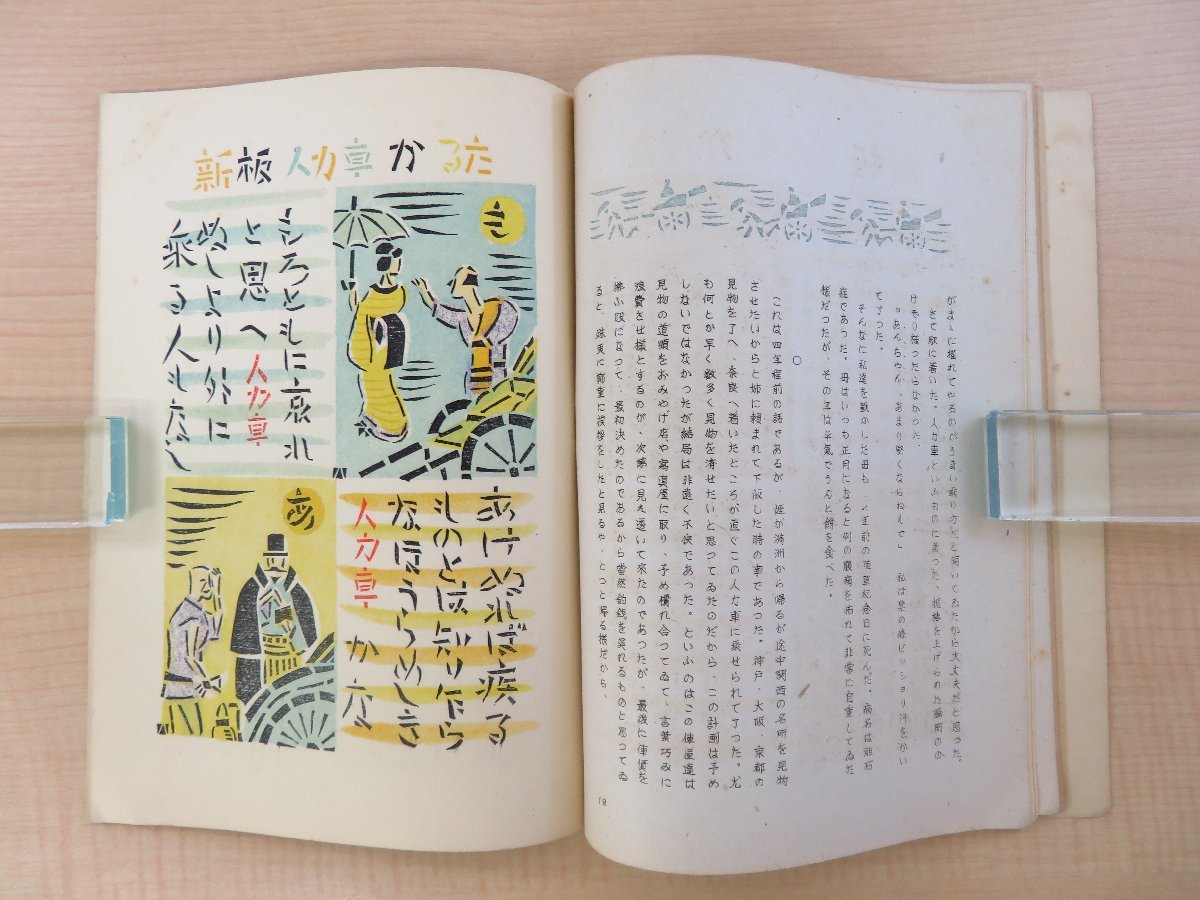 がまゝに揺れてやるのがうまい乗り方だと聞いてゐたから大丈夫だと思つた。
さて駅に着いた。人力車といふものに乗つた。梶棒を上げられた瞬間のの
けぞり様つたらなかつた。
『あんちやん、あまり堅くならねえで』 私は柴の如ビッショリ汗をかい
て了つた。
そんなに私達を歎かした母も、
庭であつた。母はいつも正月になると例の腹痛を怖れて非常に自重してゐた
様だつたが、その年は平気でうんと餅を食べた。
○
これは四年程前の話であるが、姪が満洲から帰るが途中関西の名所を見物
させたいからと姉に頼まれて下阪した時の事であつた。神戸、大阪、京都の
見物を了へ、奈良へ着いたところが直ぐこの人力車に乗せられて了つた。尤
も何とか早く数多く見物を済せたいと思つてゐたのだから、この計画は予め
しないではなかつたが結局は非道く不快であつた。といふのはこの俥屋達は
見物の道順をおみやげ店や写真屋に取り、予め慣れ合つてゐて、言葉巧みに
浪費を仕様とするのが、次第に見え透いて来たのであつたが、最後に俥賃を
払ふ段になつて、最初決めたのであるから当然釣銭を呉れるものと思つてゐ
ると、誠実に鄭重に挨拶をしたと見るや、とつと帰る様だから、
19
新板人力車かるた
も
もろともに哀れ
と思へ人力車
ぬしより外に
乗る人もなし
あ
あけぬれば疾る
ものとは知りながら
なほうらめしき
人力車かな